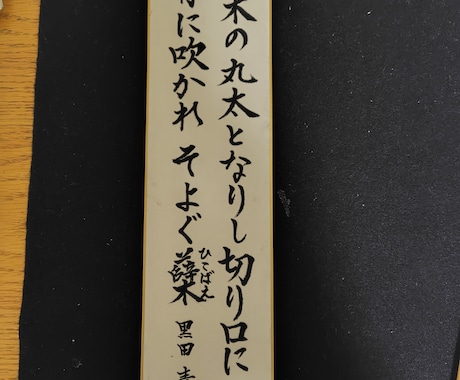 木の丸太となりし切り口に
に吹かれそよぐ蘖
ひこばえ
黒田